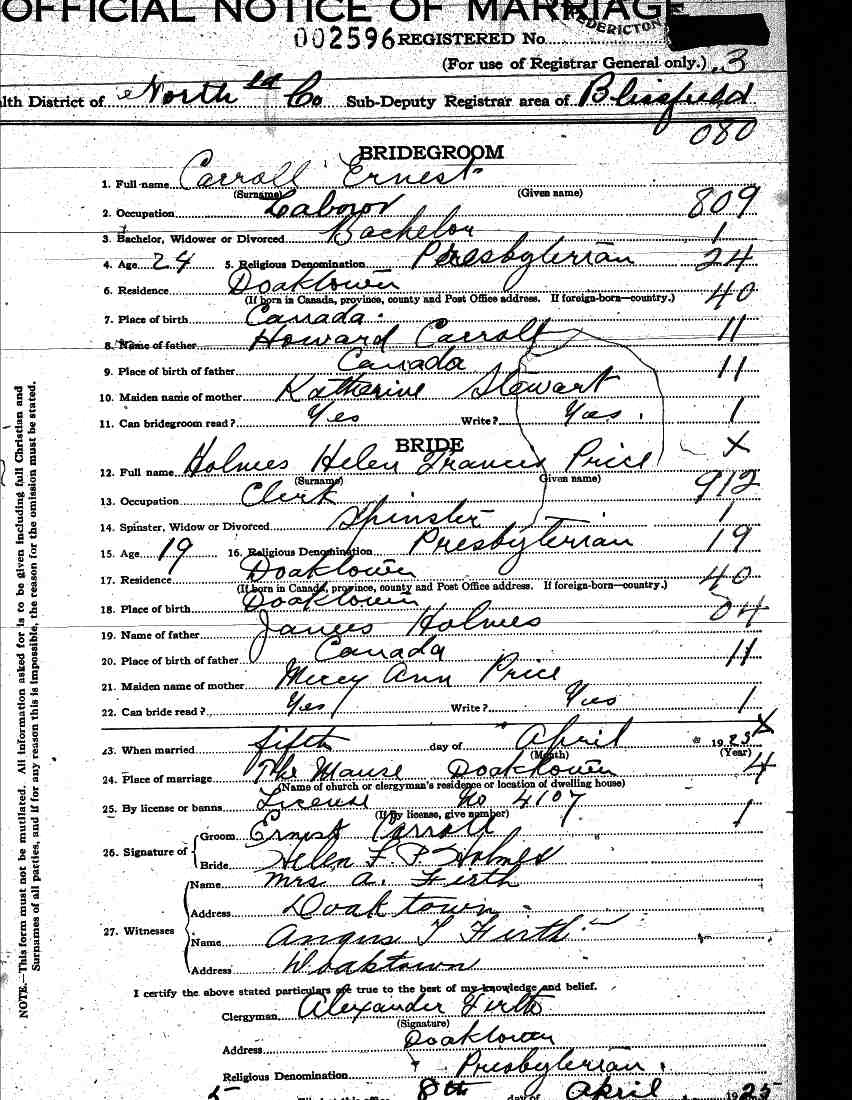 OFFICIAL NOTICE OF MARRIAGE
FREDERICTON
002596 REGISTERED No
(For use of Registrar General only.) .3
lth District of North ld Co Sub-Deputy Registrar area of Blissfield
080
BRIDEGROOM
1. Full name Carroll Ernest
(Surname) (Given name)
2. Occupation Laboror 809
3. Bachelor, Widower or Divorced Bachelor 1
4. Age 24 5. Religious Denomination Presbyterian 24
6. Residence Doaktown 40
(If born in Canada, province, county and Post Office address. If foreign-born—country.)
7. Place of birth Canada.
8. Name of father Howard Carroll 11
9. Place of birth of father Canada 11
10. Maiden name of mother Katharine Stewart
11. Can bridegroom read? Yes Write? Yes. 1
BRIDE X
12. Full name Holmes Helen Frances Price
(Surname) Given name)
13. Occupation Clerk 912
14. Spinster, Widow or Divorced Spinster 1
15. Age 19 16. Religious Denomination Presbyterian 19
17. Residence Doaktown 40
(If born in Canada, province, county and Post Office address. If foreign-born—country.)
18. Place of birth Doaktown 04
19. Name of father James Holmes
20. Place of birth of father Canada 11
21. Maiden name of mother Mercy Ann Price
22. Can bride read? Yes Write? Yes 1
23. When married fifth day of April 1925 X
(Month) (Year)
24. Place of marriage The Manse Doaktown 4
(Name of church or clergyman's residence or location of dwelling house)
25. By license or banns License No 4107 1
(If by license, give number)
26. Signature of Groom Ernest Carroll
Bride Helen F. P. Holmes
27. Witnesses Name Mrs. A. Firth
Address Doaktown
Name Angus T Firth
Address Doaktown
I certify the above stated particulars are true to the best of my knowledge and belief.
Clergyman Alexander Firth
(Signature)
Address Doaktown
Religious Denomination Presbyterian.
8th day of April 1925
NOTE.—This form must not be mutilated. All information asked for is to be given including full Christian and
Surnames of all parties, and if for any reason this is impossible, the reason for the omission must be stated.